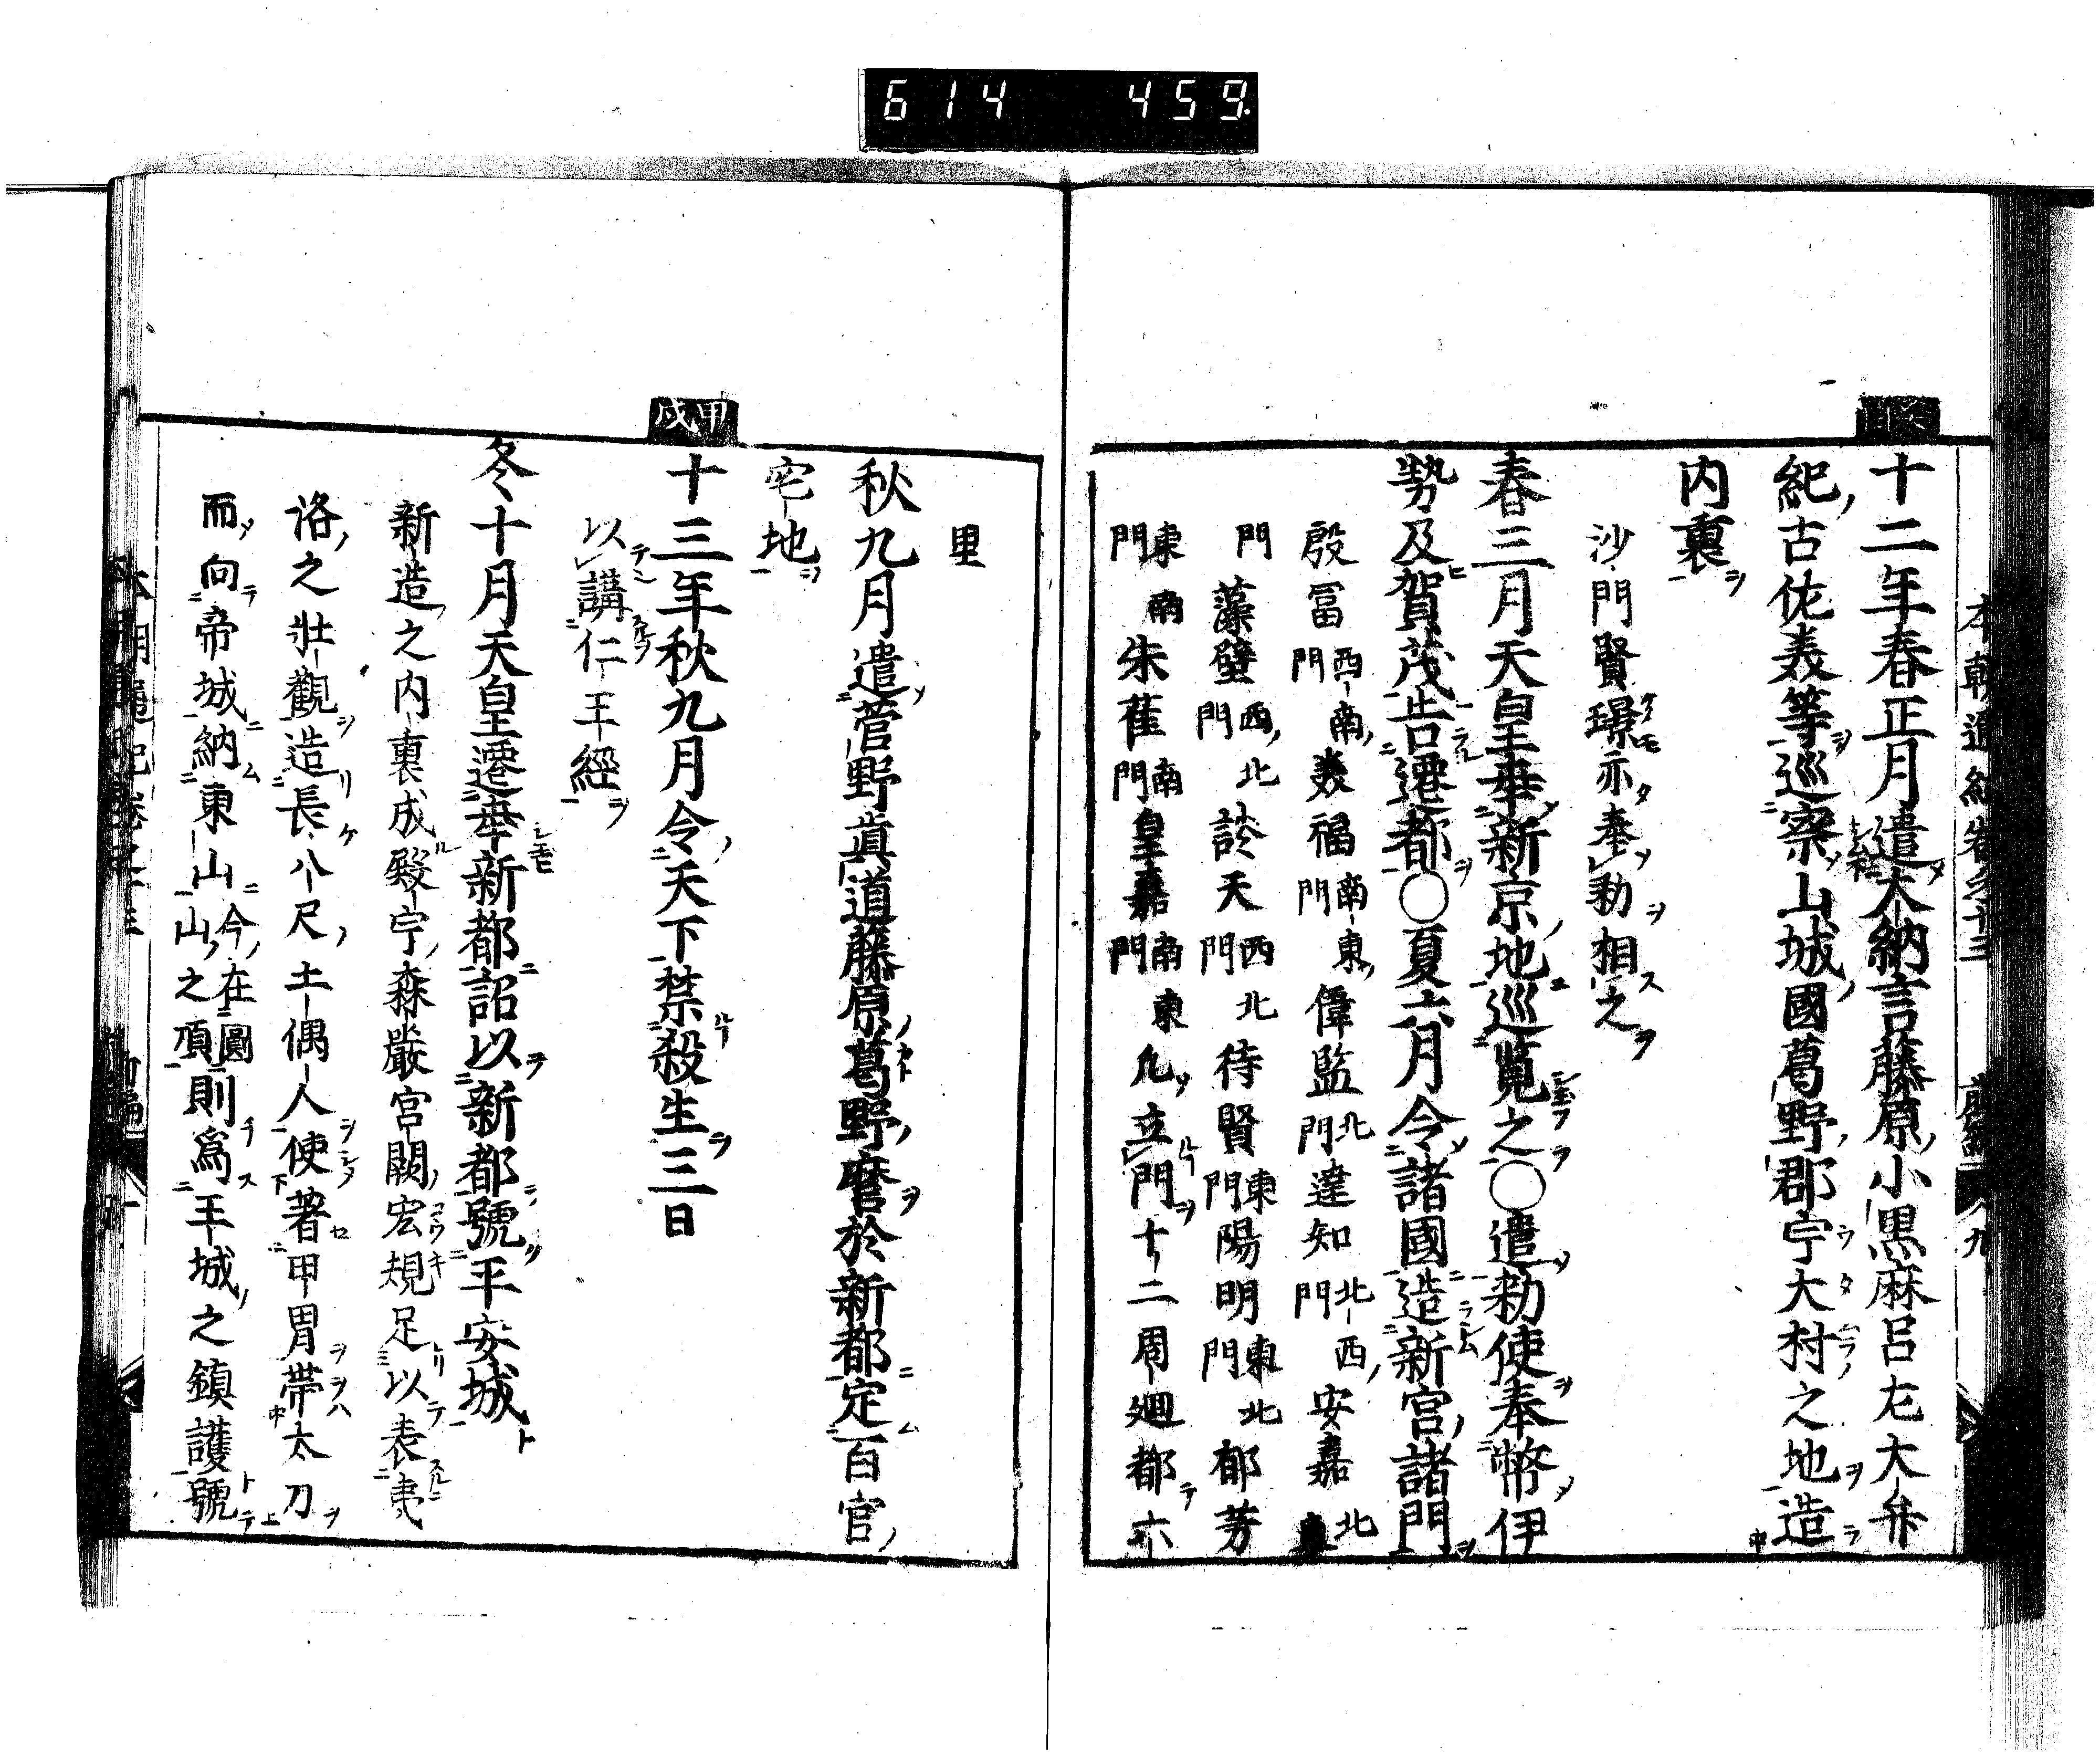 614 459.
本朝通紀卷之十三 前編 九
癸酉
十二年春正月遣大納言藤原小黒麻呂左大弁
紀古佐美等巡察山城國葛野郡宇大村之地造
内裏
沙門賢璟亦奉勅相之
春三月天皇幸新京地巡覧之〇遣勅使奉幣伊
勢及賀茂告遷都〇夏六月令諸國造新宮諸門
殷冨門西南美福門南東偉監門北達知門北西安嘉門北
門藻壁門西北談天門西北待賢門東陽明門東北郁芳
門東南朱雀門南皇嘉門南東凡立門十二周廻都六
里
秋九月遣菅野眞道藤原葛野麿於新都定百官
宅地
甲戌
十三年秋九月令天下禁殺生三日
以講仁王經
冬十月天皇遷幸新都詔以新都號平安城
新造之内裏成殿宇森嚴宮闕宏規足以表夷
洛之壯觀造長八尺土偶人使著甲冑帯太刀
而向帝城納東山今在圓山之頂則爲王城之鎮護號